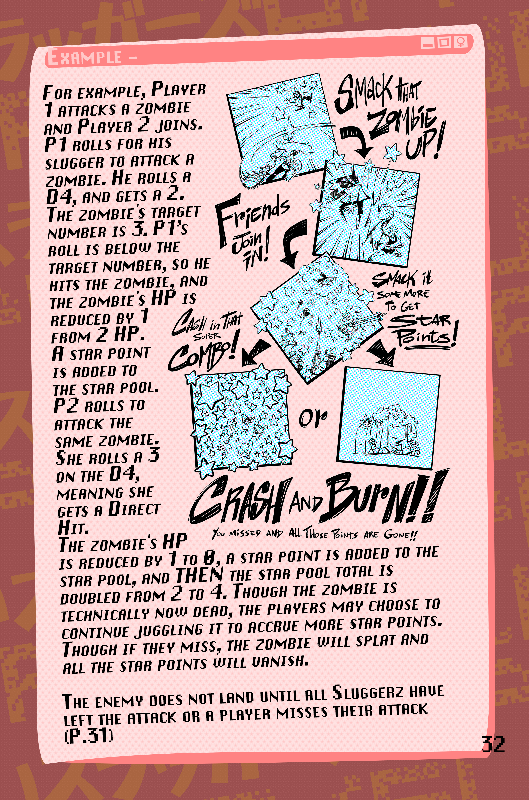 Example –
For example, Player
1 attacks a zombie
and Player 2 joins.
P1 rolls for his
slugger to attack a
zombie. He rolls a
D4, and gets a 2.
The zombie's target
number is 3. P1's
roll is below the
target number, so he
hits the zombie, and
the zombie's HP is
reduced by 1
from 2 HP.
A star point
is added to
the star pool.
P2 rolls to
attack the
same zombie.
She rolls a 3
on the D4,
meaning she
gets a Direct
Hit.
The zombie's HP
is reduced by 1 to 0, a star point is added to the
star pool, and THEN the star pool total is
doubled from 2 to 4. Though the zombie is
technically now dead, the players may choose to
continue juggling it to accrue more star points.
Though if they miss, the zombie will splat and
all the star points will vanish.
The enemy does not land until all Sluggerz have
left the attack or a player misses their attack
(P.31)
Smack that
Zombie
UP!
Friends
Join
in!
Smack it
some more
to get
Star
Points!
Cash in That
Super
Combo!
or
Crash and Burn!!
You missed and all those points are gone!!
32